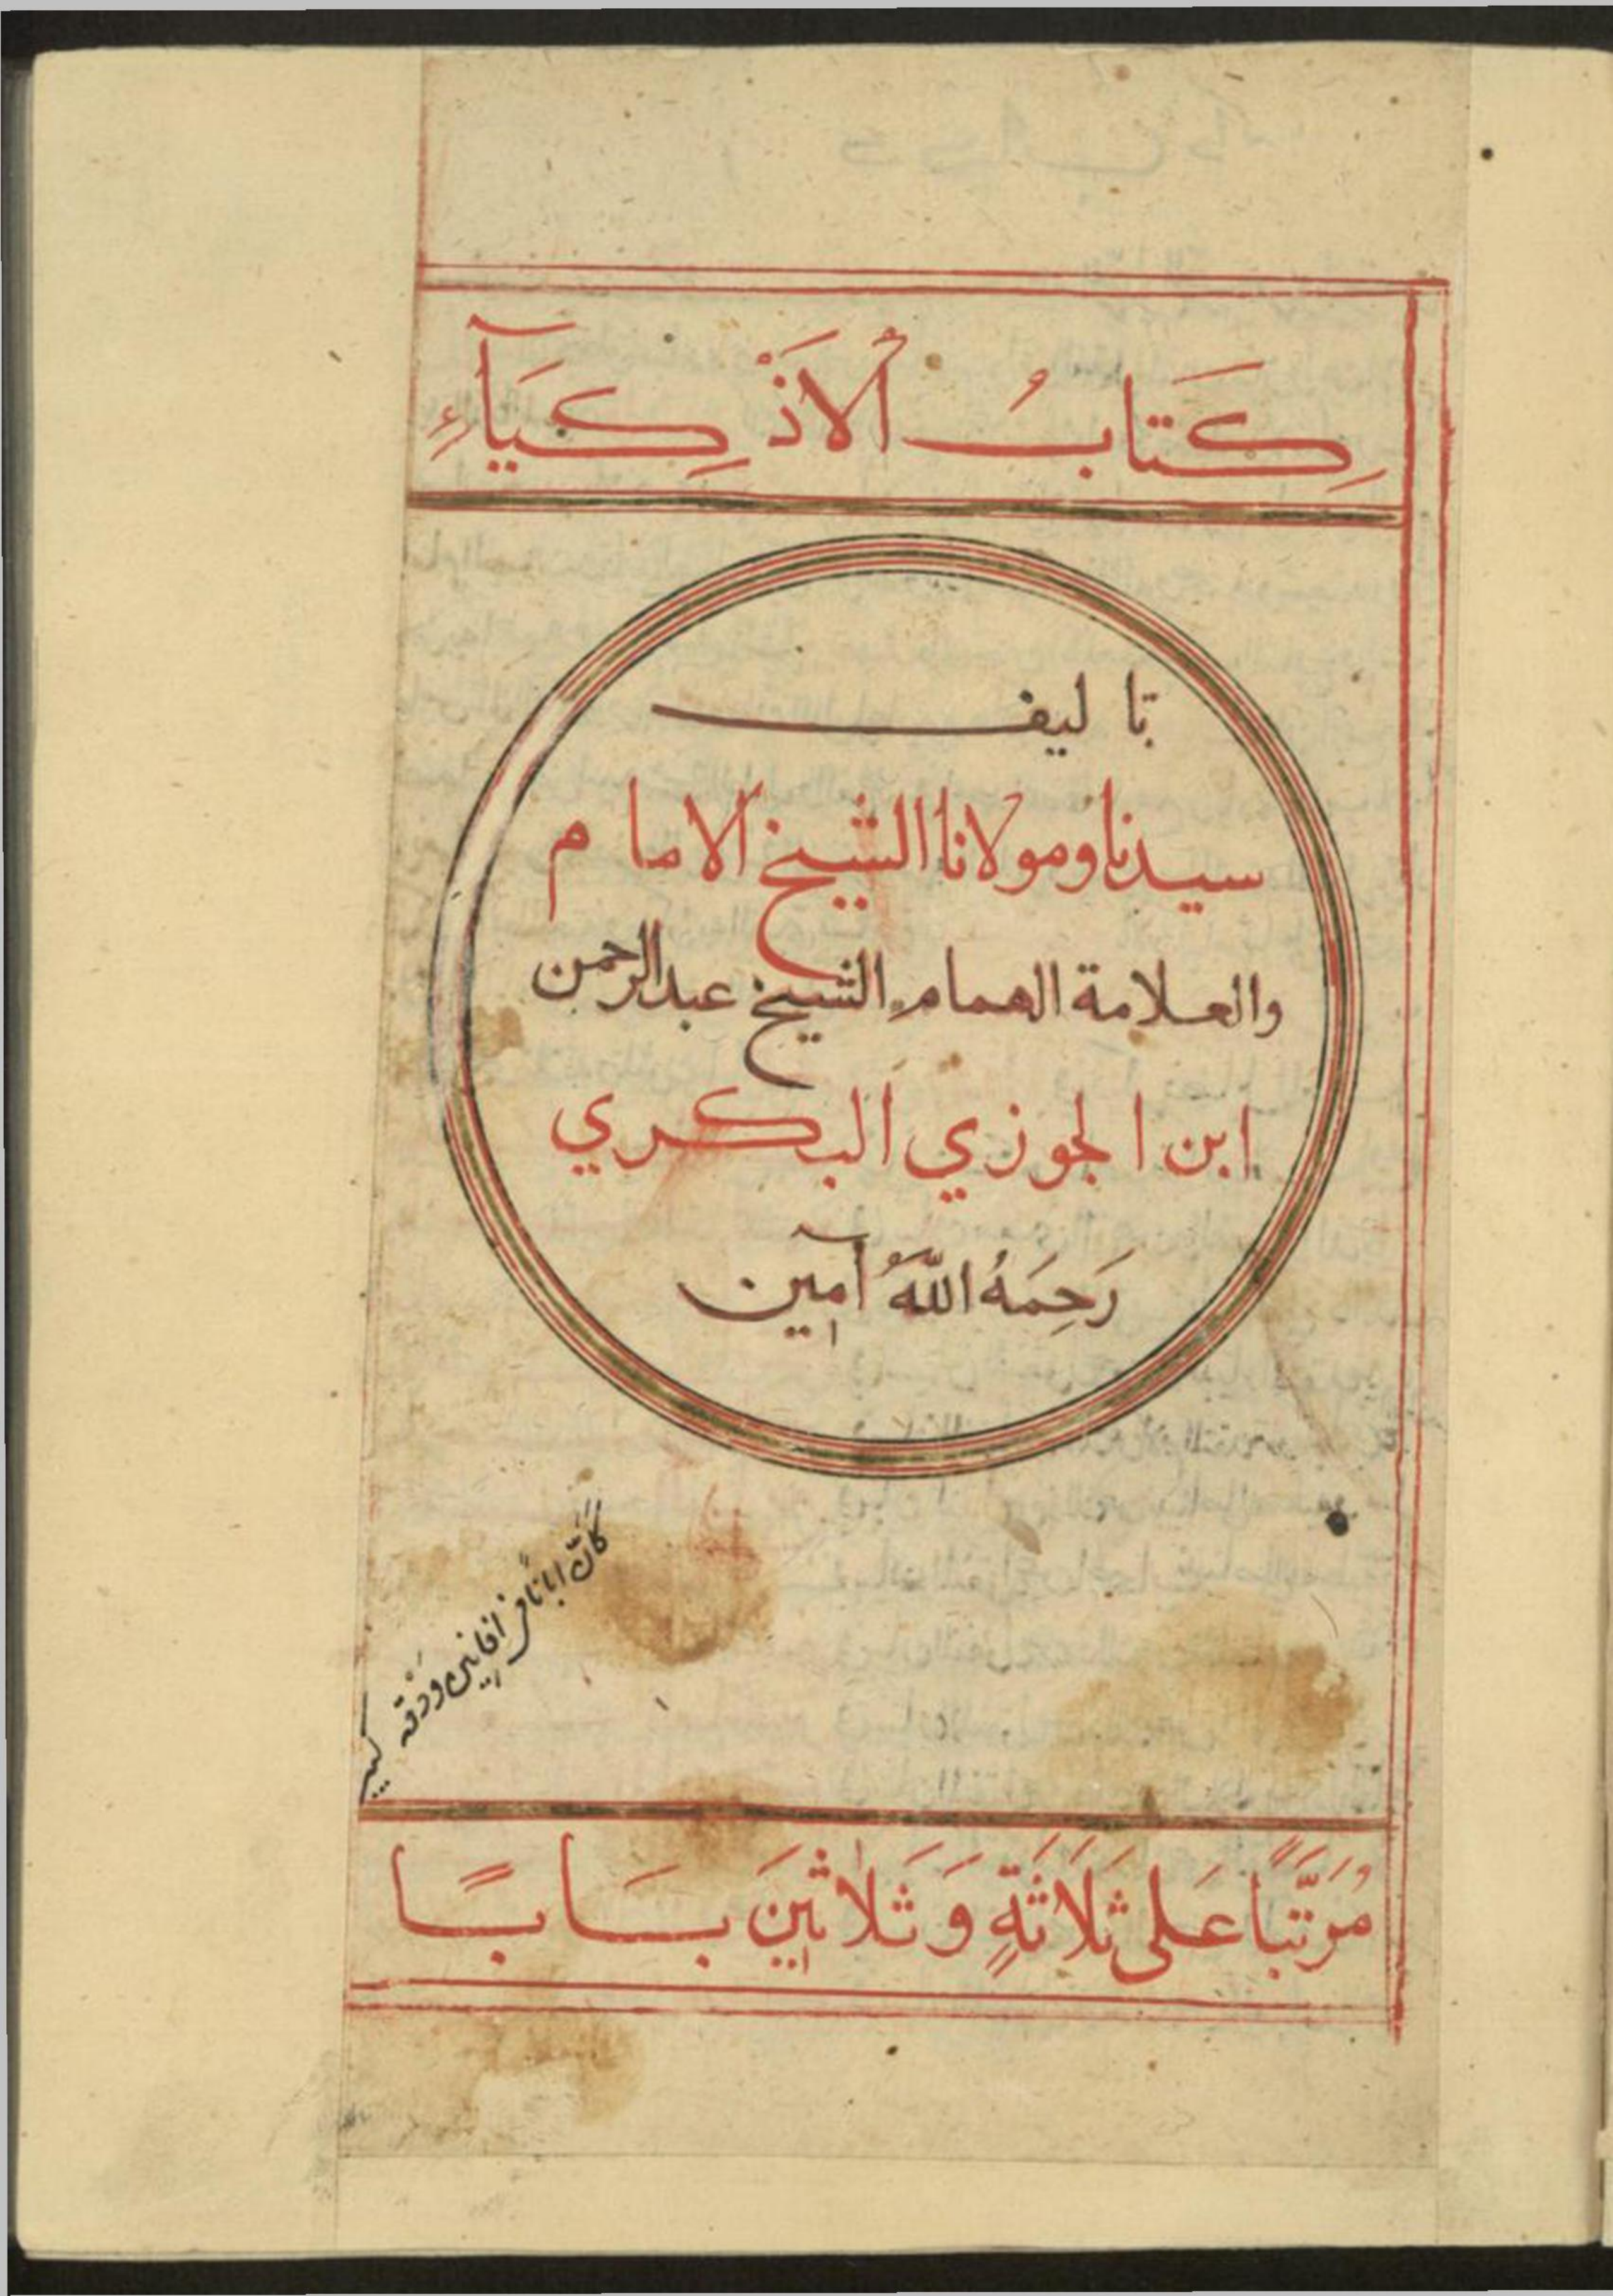 كِتَابُ ٱلْاَذْكِيَآءِ
تاليف
سيدنا ومولانا الشيخ الامام
والعلامة الهمام الشيخ عبد الرحمن
ابن الجوزي البكري
رَحِمَهُ اللّٰهُ آمين
كَاَنَّ ابانًا في افانين ودقه
كبير
مُرَتَّبًا عَلى ثَلَاثَةٍ وَثَلَاثينَ بَابًا